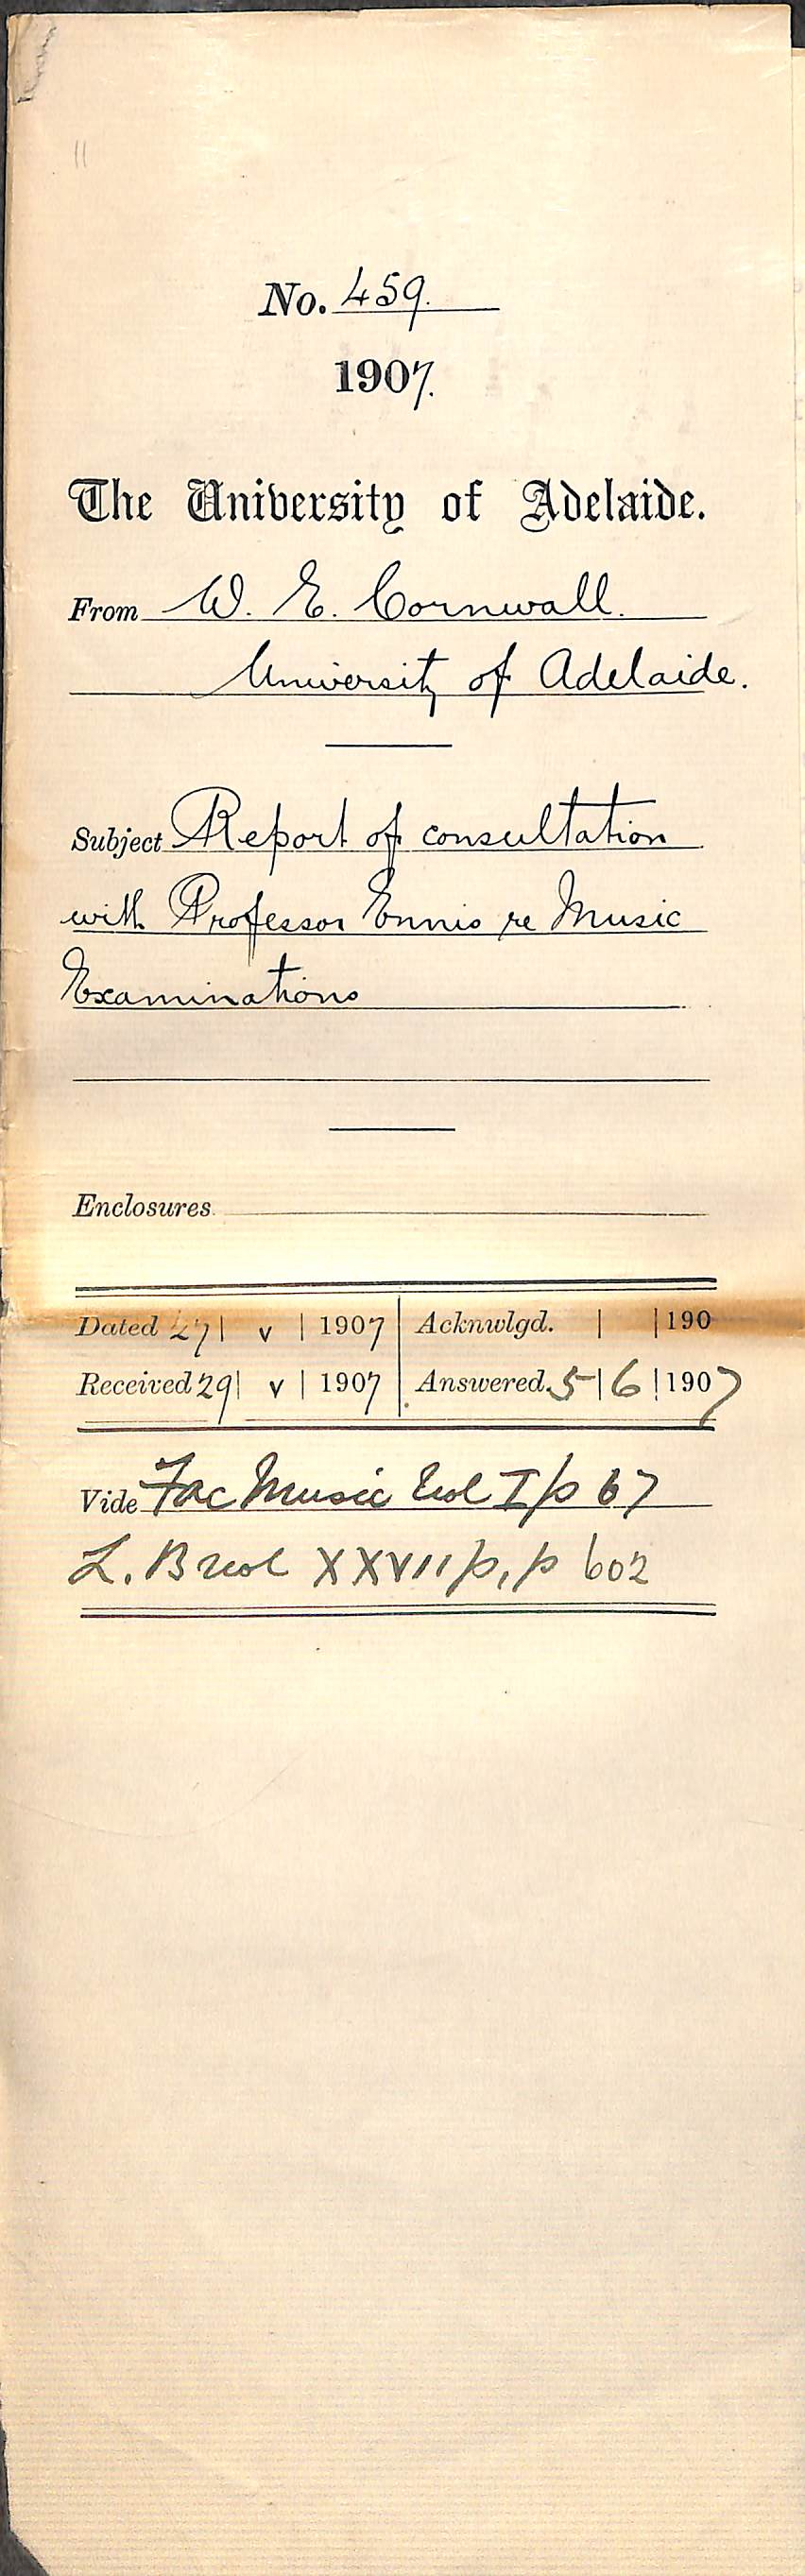 No. 459.
1907.
The University of Adelaide.
From W. E. Cornwall.
University of Adelaide.
Subject Report of consultation
with Professor Ennis re Music
Examinations
Enclosures
Dated 27 | v | 1907 Acknwlgd. | | 190
Received 29 | v | 1907 Answered. 5 | 6 | 1907
Vide Fac Music Vol I p 67
L. B vol XXVII p, p 602